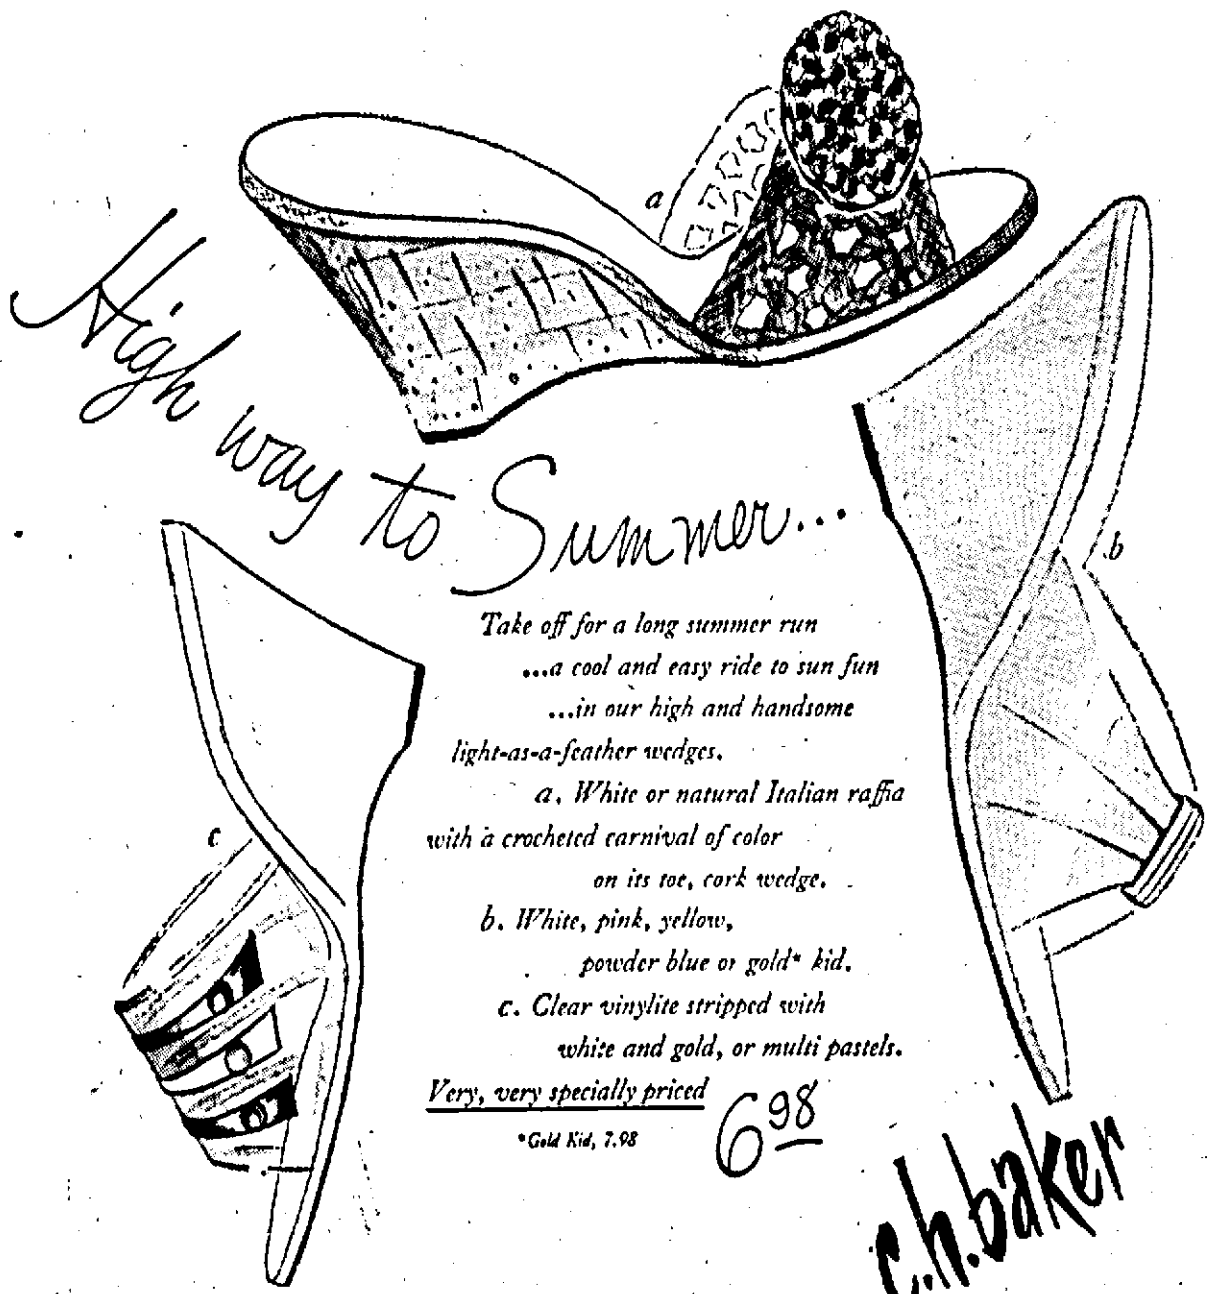 a
High way to Summer...
b
Take off for a long summer run
...a cool and easy ride to sun fun
...in our high and handsome
light-as-a-feather wedges.
a. White or natural Italian raffia
with a crocheted carnival of color
on its toe, cork wedge.
b. White, pink, yellow,
powder blue or gold* kid.
c. Clear vinylite stripped with
white and gold, or multi pastels.
Very, very specially priced
6 98
*Gold Kid, 7.98
c
c.h.baker